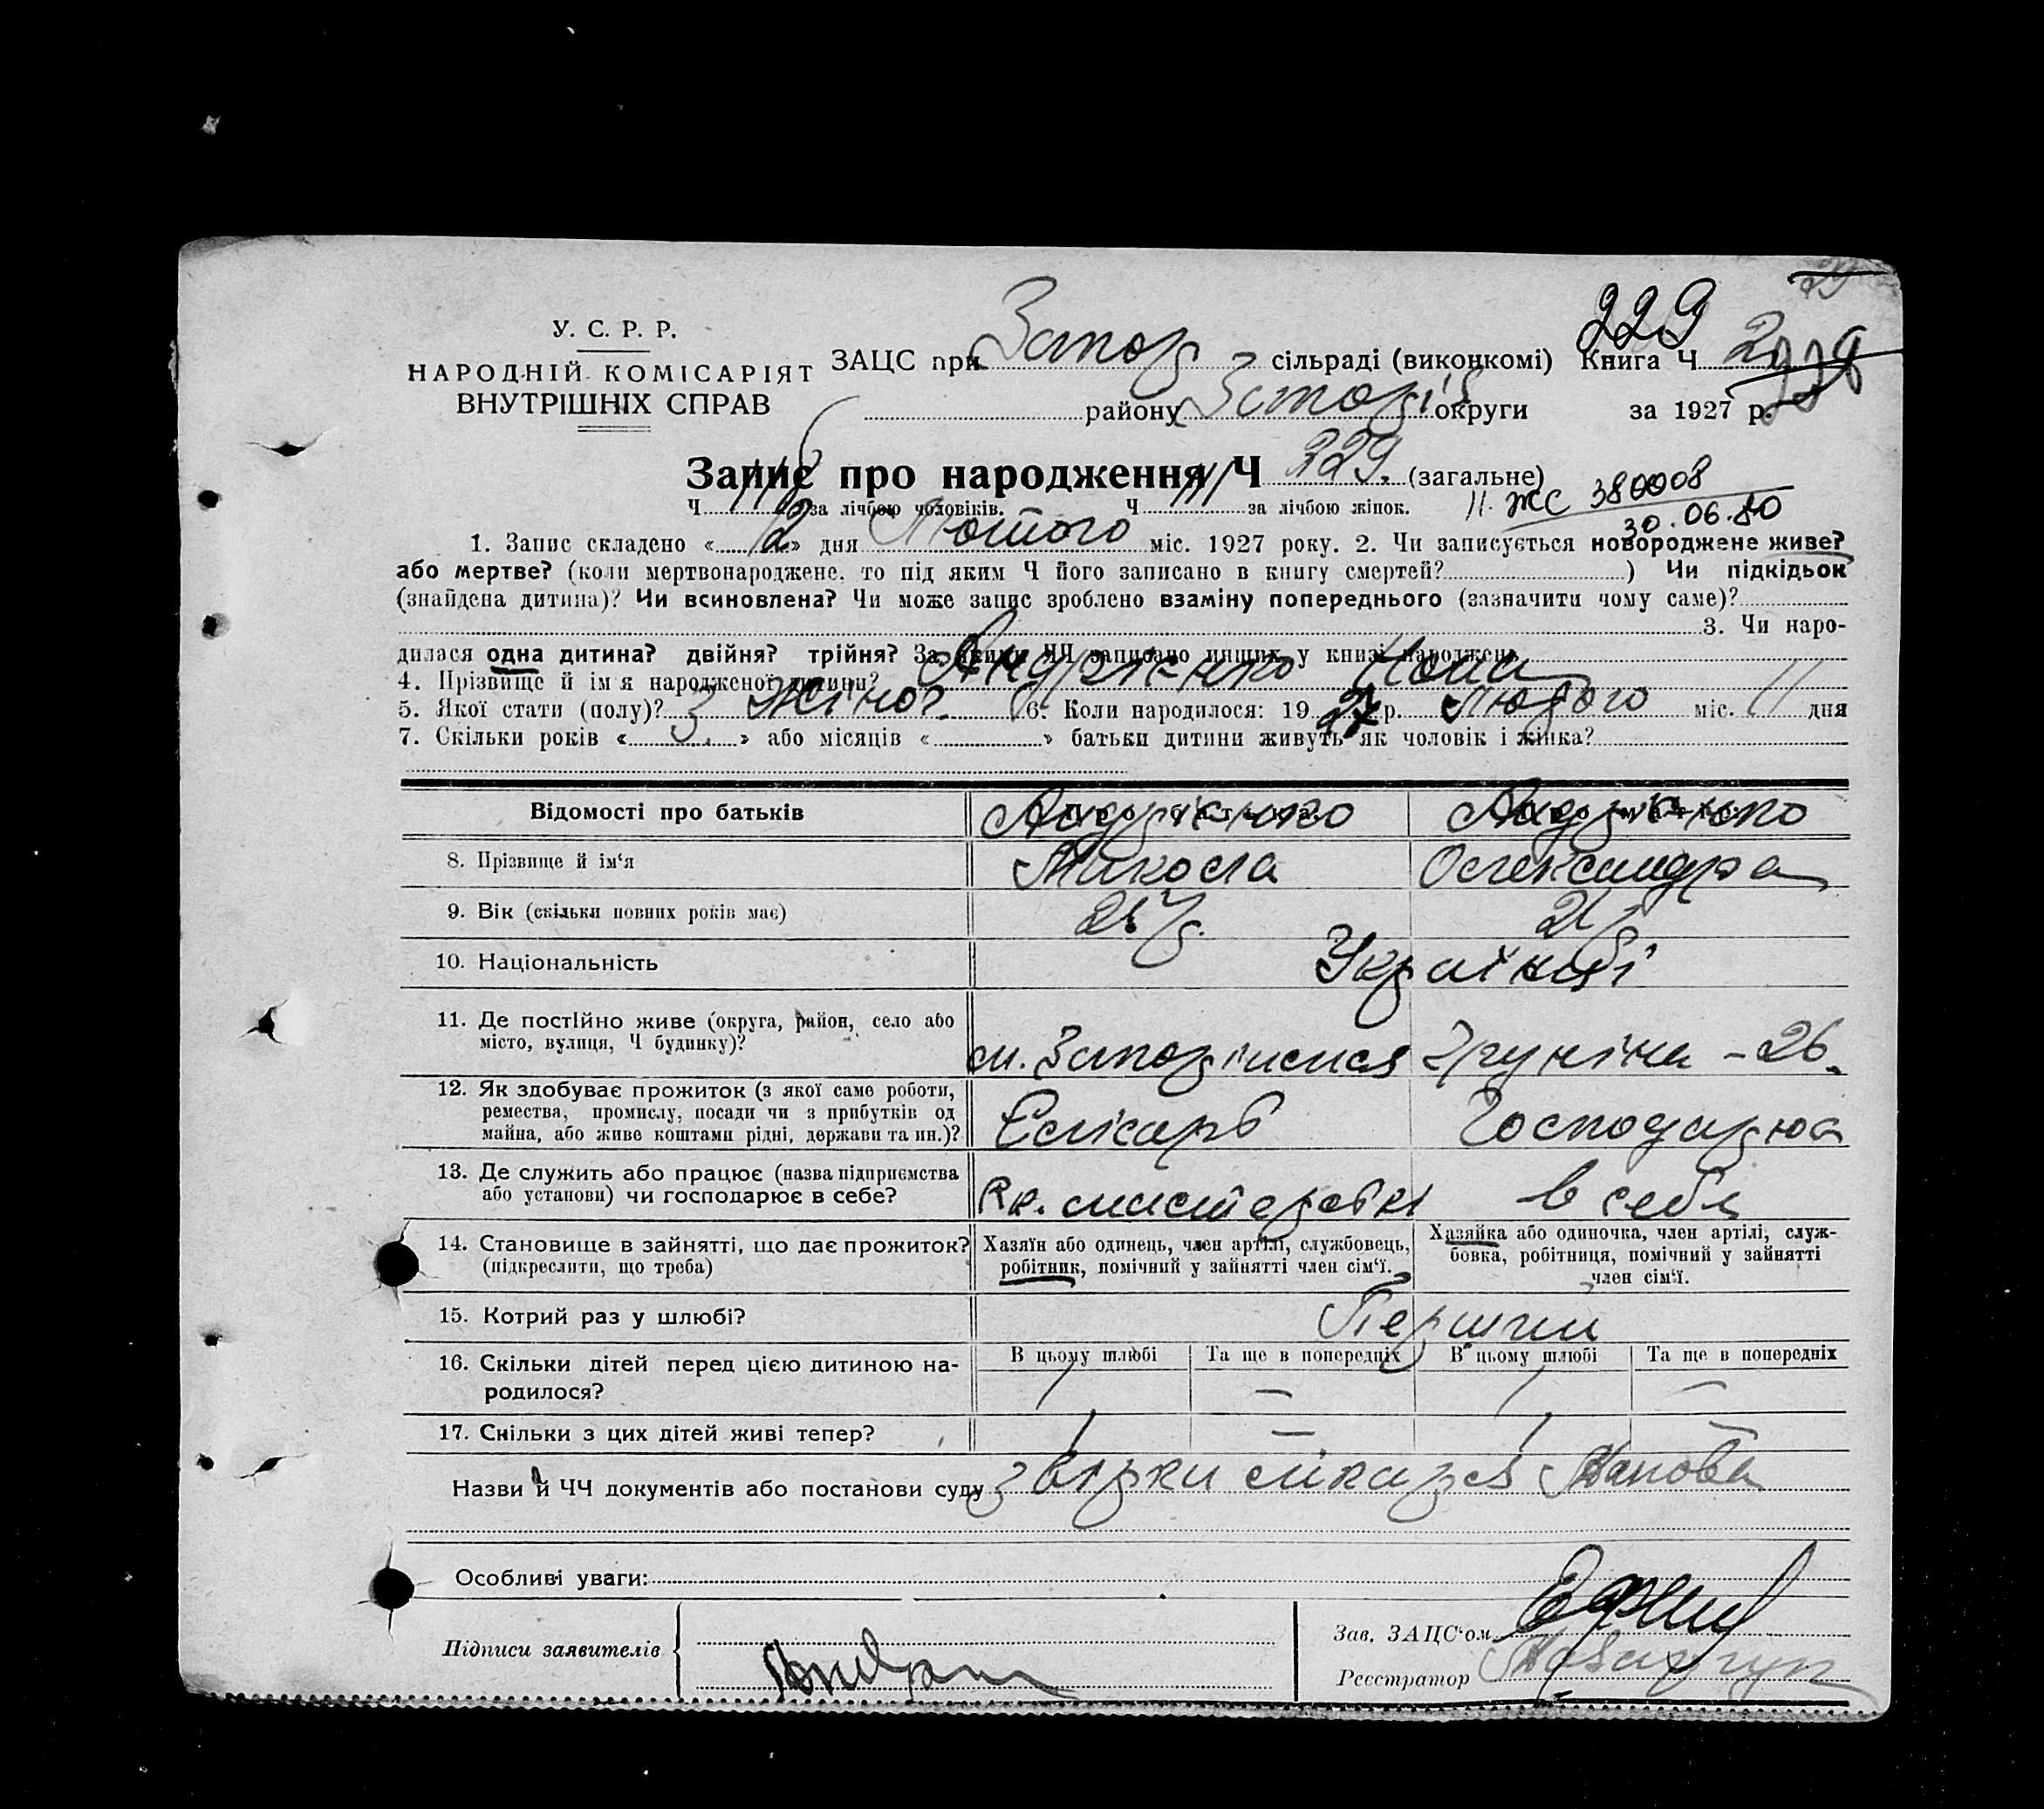 229
У. С. Р. Р.
НАРОДНІЙ КОМІСАРІЯТ
ВНУТРІШНІХ СПРАВ
ЗАЦС при Запор сільраді (виконкомі) Книга Ч 2
району округи за 1927 р.
Запис про народження Ч 229. (загальне)
Ч за лічбою чоловіків. Ч 111 за лічбою жінок.
ІІ. ЖС 380008
30.06.80
1. Запис складено « » дня Лютого міс. 1927 року. 2. Чи записується новороджене живе?
або мертве? (коли мертвонароджене, то під яким Ч його записано в книгу смертей? ) Чи підкідьок
(знайдена дитина)? Чи всиновлена? Чи може запис зроблено взаміну попереднього (зазначити чому саме)?
3. Чи наро-
дилася одна дитина? двійня? трійня? За якими ЧЧ записано инших у книзі народжень
4. Прізвище й ім'я народженої дитини? Андрієнко
5. Якої стати (полу)? Жіно?. 6. Коли народилося: 1927 р. Лютого міс. 11 дня
7. Скільки років « 3 » або місяців « » батьки дитини живуть як чоловік і жінка?
Відомості про батьків Андрієнко Андрієнко
8. Прізвище й ім‘я Микола Олександра
9. Вік (скільки повних років має) 21
10. Національність Українці
11. Де постійно живе (округа, район, село або
місто, вулиця, Ч будинку)? м. Запоріжжя – 26.
12. Як здобуває прожиток (з якої саме роботи,
ремества, промислу, посади чи з прибутків од
майна, або живе коштами рідні, держави та ин.)? Слюсарь Господарює
13. Де служить або працює (назва підприємства
або установи) чи господарює в себе? майстеровні в себе
14. Становище в зайнятті, що дає прожиток?
(підкреслити, що треба)
Хазяїн або одинець, член артілі, службовець,
робітник, помічний у зайнятті член сім‘ї.
Хазяйка або одиночка, член артілі, служ-
бовка, робітниця, помічний у зайнятті
член сім‘ї.
15. Котрий раз у шлюбі? Перший
16. Скільки дітей перед цією дитиною на-
родилося?
В цьому шлюбі Та ще в попередніх В цьому шлюбі Та ще в попередніх
1 — 1 —
17. Скільки з цих дітей живі тепер? 1 — 1 —
Назви й ЧЧ документів або постанови суду
Особливі уваги:
Підписи заявителів
Зав. ЗАЦС‘ом
Реєстратор